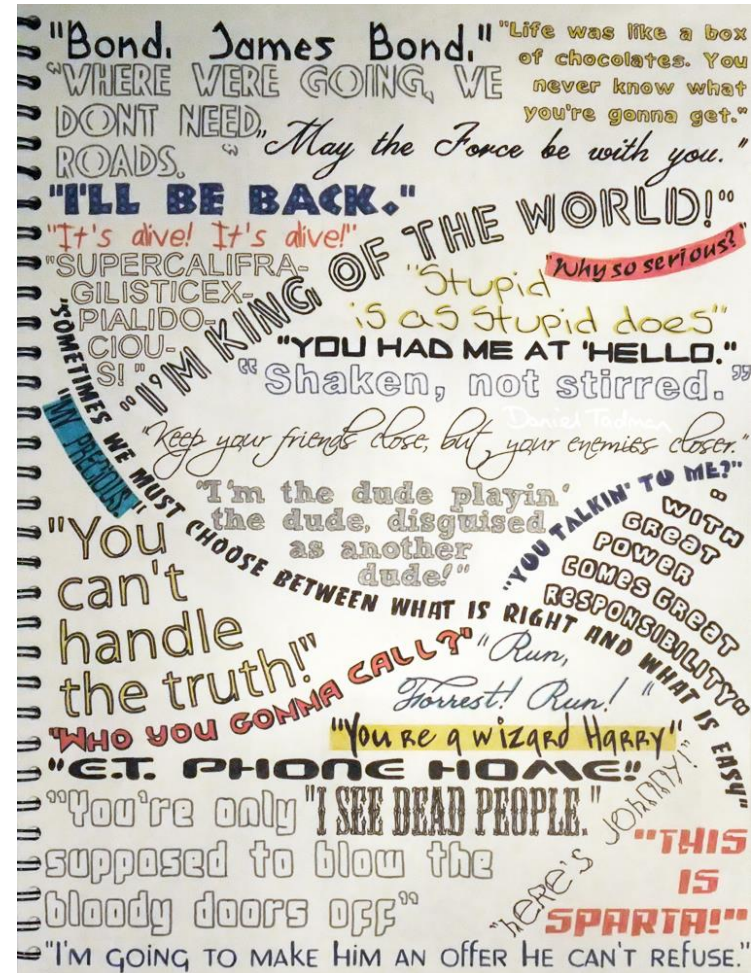 "Bond. James Bond."
"Life was like a box
of chocolates. You
never know what
you're gonna get."
"WHERE WERE GOING, WE
DONT NEED
ROADS."
"May the Force be with you."
"I'LL BE BACK."
"It's alive! It's alive!"
"I'M KING OF THE WORLD!"
"Why so serious?"
"SUPERCALIFRA-
GILISTICEX-
PIALIDO-
CIOU-
S!"
"Stupid
is as Stupid does"
"YOU HAD ME AT 'HELLO."
"Shaken, not stirred."
Daniel Tadman
"SOMETIMES WE MUST CHOOSE BETWEEN WHAT IS RIGHT AND WHAT IS EASY"
"MY PRECIOUS"
"Keep your friends close, but your enemies closer."
"I'm the dude playin'
the dude, disguised
as another
dude!"
"YOU TALKIN' TO ME?"
"WITH
GREAT
POWER
COMES GREAT
RESPONSIBILITY"
"You
can't
handle
the truth!"
"WHO YOU GONNA CALL?"
"Run,
Forrest! Run!"
"You're a wizard Harry"
"E.T. PHONE HOME!"
"You're only
supposed to blow the
bloody doors off"
"I SEE DEAD PEOPLE."
"HERE'S JOHNNY!"
"THIS
IS
SPARTA!"
"I'M GOING TO MAKE HIM AN OFFER HE CAN'T REFUSE."